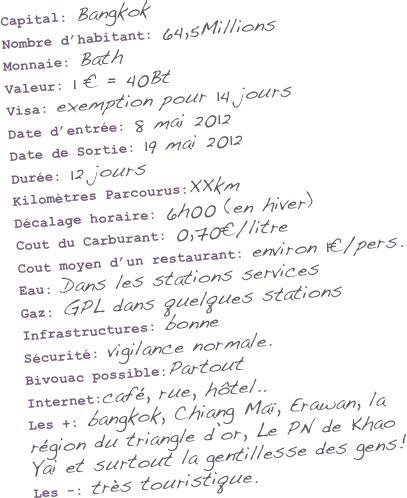 Capital: Bangkok
Nombre d'habitant: 64,5Millions
Monnaie: Bath
Valeur: 1 € = 40Bt
Visa: exemption pour 14 jours
Date d'entrée: 8 mai 2012
Date de Sortie: 19 mai 2012
Durée: 12 jours
Kilomètres Parcourus:XXkm
Décalage horaire: 6h00 (en hiver)
Cout du Carburant: 0,70€/litre
Cout moyen d'un restaurant: environ 1€/pers.
Eau: Dans les stations services
Gaz: GPL dans quelques stations
Infrastructures: bonne
Sécurité: vigilance normale.
Bivouac possible:Partout
Internet:café, rue, hôtel..
Les +: bangkok, Chiang Maï, Erawan, la
région du triangle d'or, Le PN de Khao
Yai et surtout la gentillesse des gens!
Les -: très touristique.